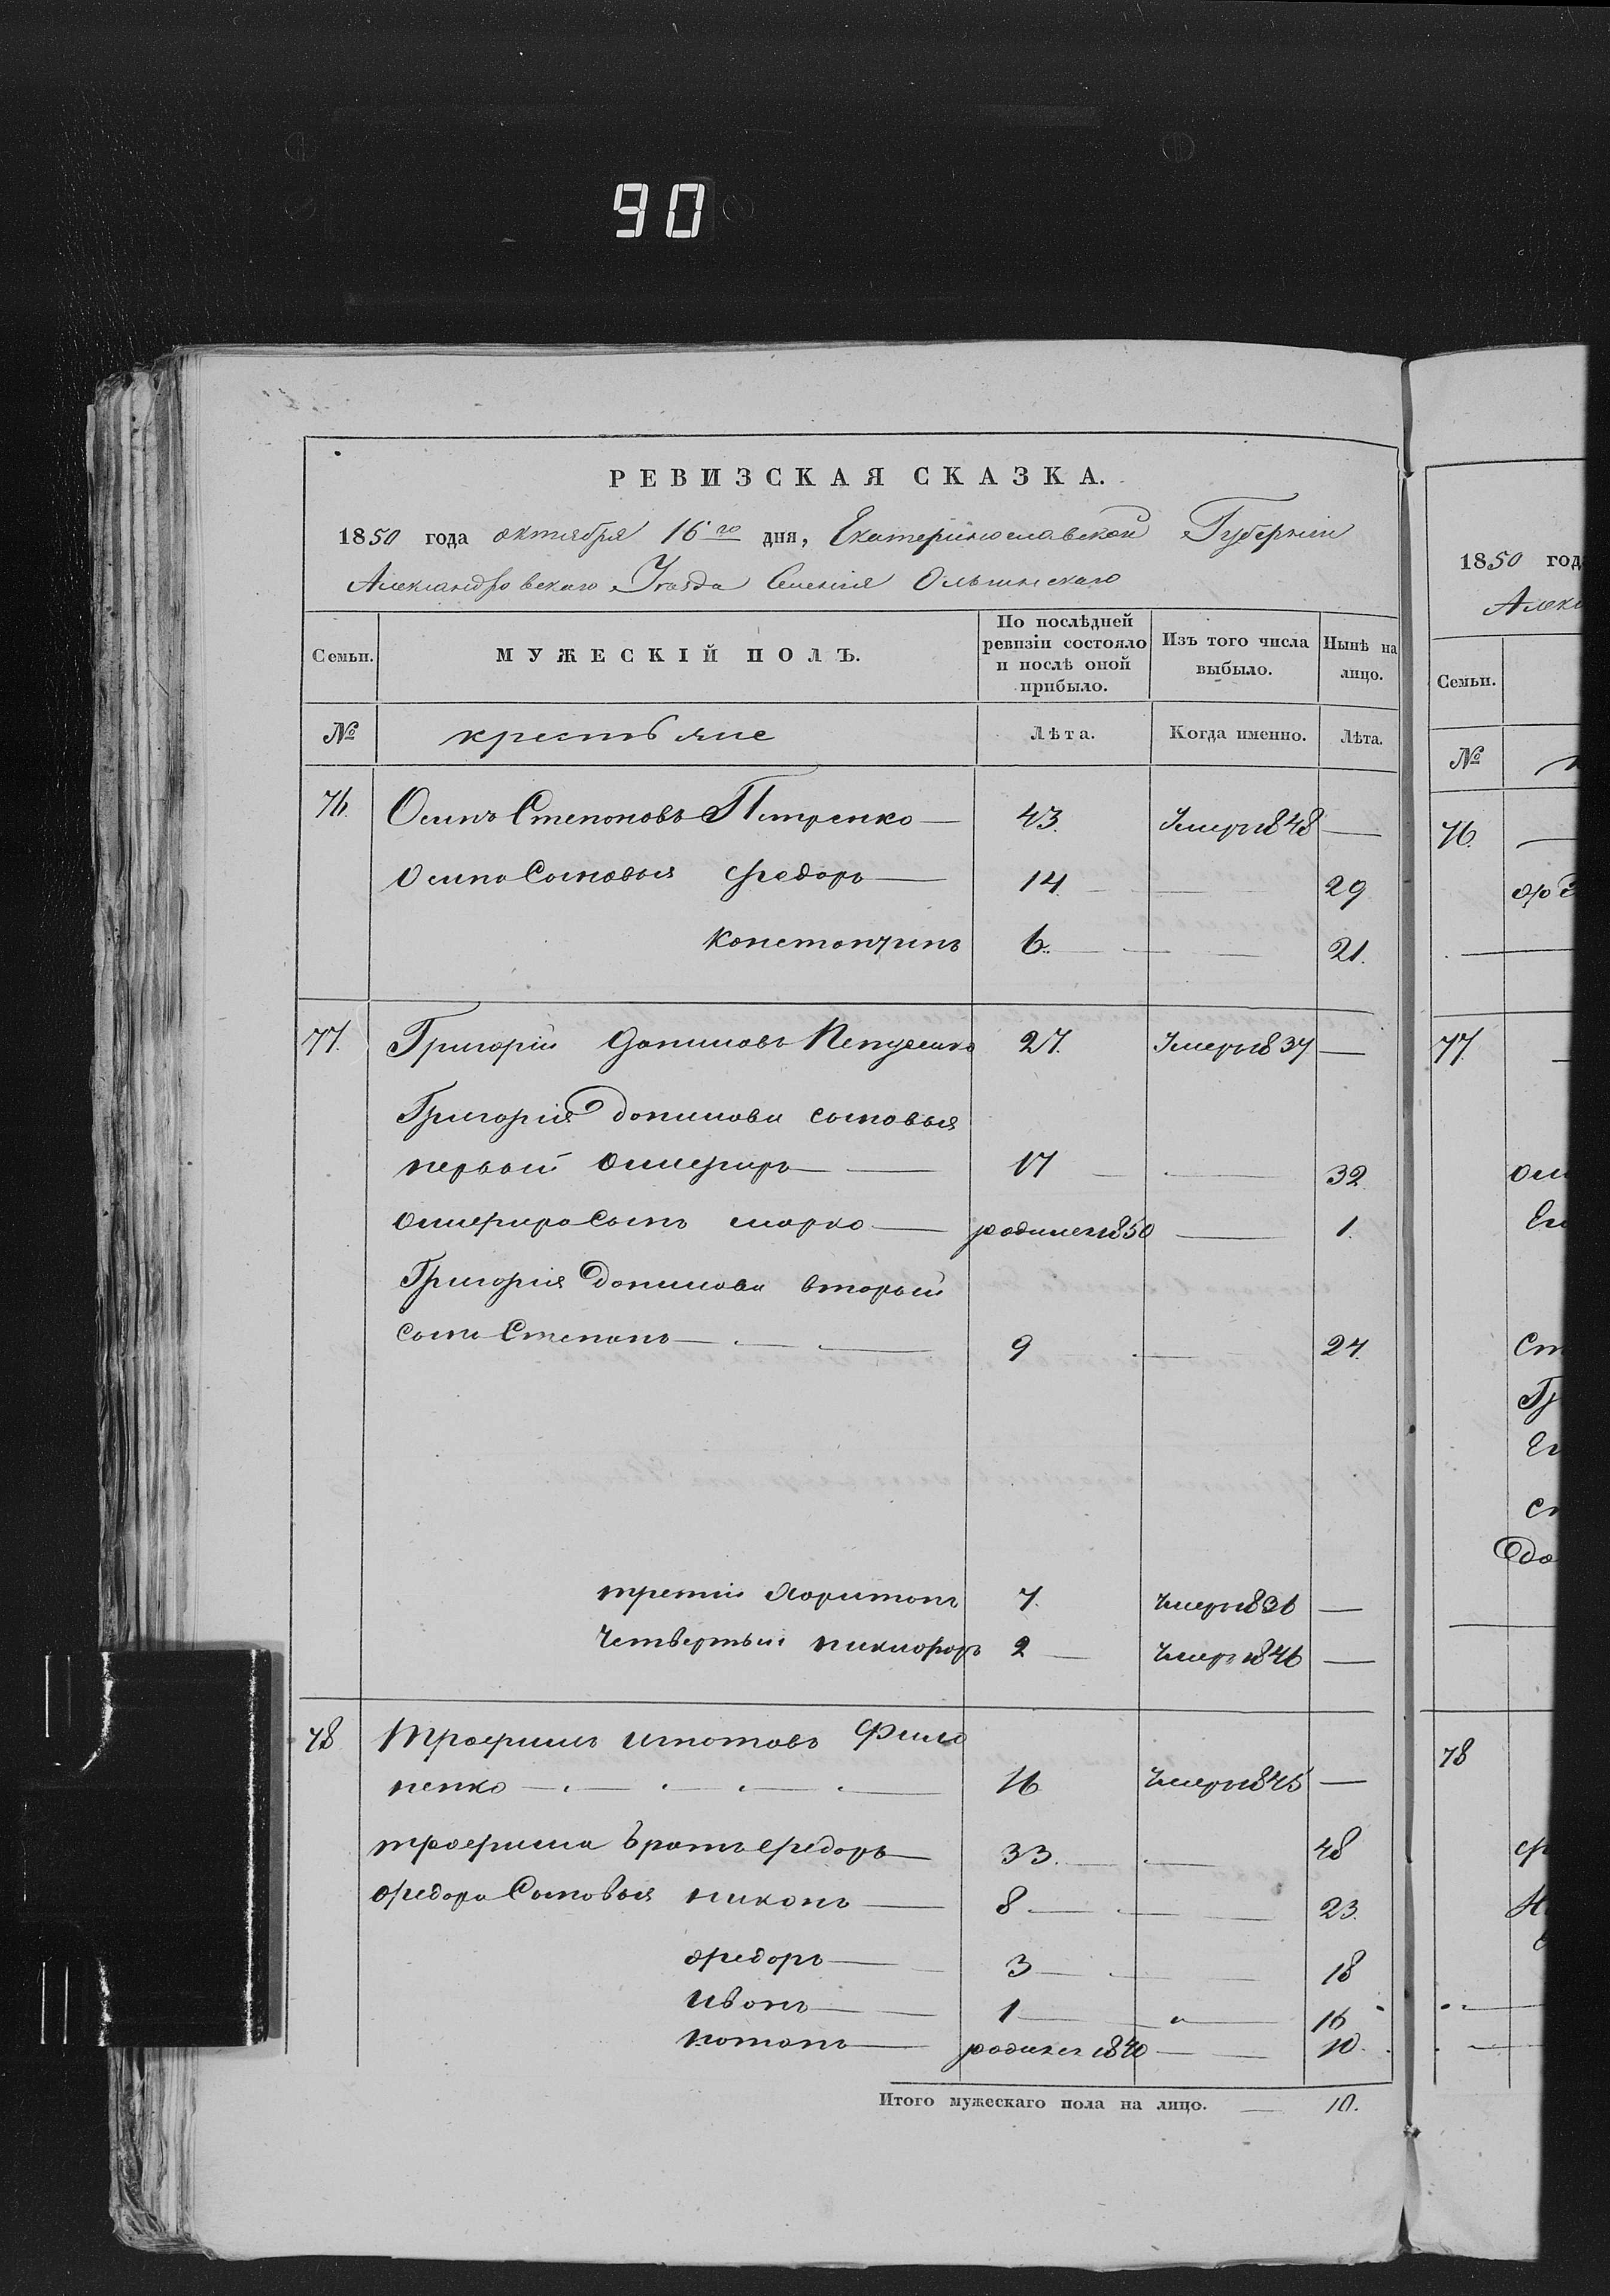 90
РЕВИЗСКАЯ СКАЗКА.
1850 года октября 16го дня, Екатеринославской Губернии
Александровскаго Уезда Селения Ольгинскаго
Семьи. МУЖЕСКІЙ ПОЛЪ. По послѣдней ревизіи состояло и послѣ оной прибыло. Изъ того числа выбыло. Нынѣ на лицо.
№ крестьяне Лѣта. Когда именно. Лѣта.
76. Осипъ Степановъ Петренко — 43. Умеръ 1848 —
Осипа Сыновья Федоръ — 14 — 29
Константинъ 6. — 21.
77. Григорій Даниловъ 27. Умеръ 1837 —
Григорія Данилова сыновья
первой — 17 — 32
сынъ марко — родился 1850 — 1.
Григорія Данилова второй
сынъ Степанъ — 9 — 24.
третій Харитонъ 7. Умеръ 1836 —
Четвертый никифоръ 2 — Умеръ 1846 —
78 Трофимъ Фило
ненко — 16 Умеръ 1845 —
трофима братъ Федоръ — 33. — 48
Федора Сыновья никонъ — 8 — 23.
Федоръ — 3 — 18
Иванъ — 1 — 16
потапъ — родился 1840 — 10.
Итого мужескаго пола на лицо. — 10.
1850 год
Алекс
Семьи.
№
76.
77
78